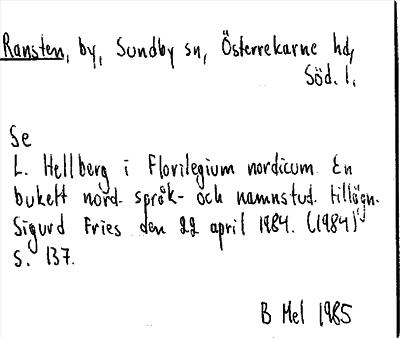 Ransten, by, Sundby sn, Österrekarne hd,
Söd. l.
Se
L. Hellberg i Florilegium nordicum. En
bukett nord. språk- och namnstud. tillägn.
Sigurd Fries den 22 april 1984. (1984)
s. 137.
B Mel 1985